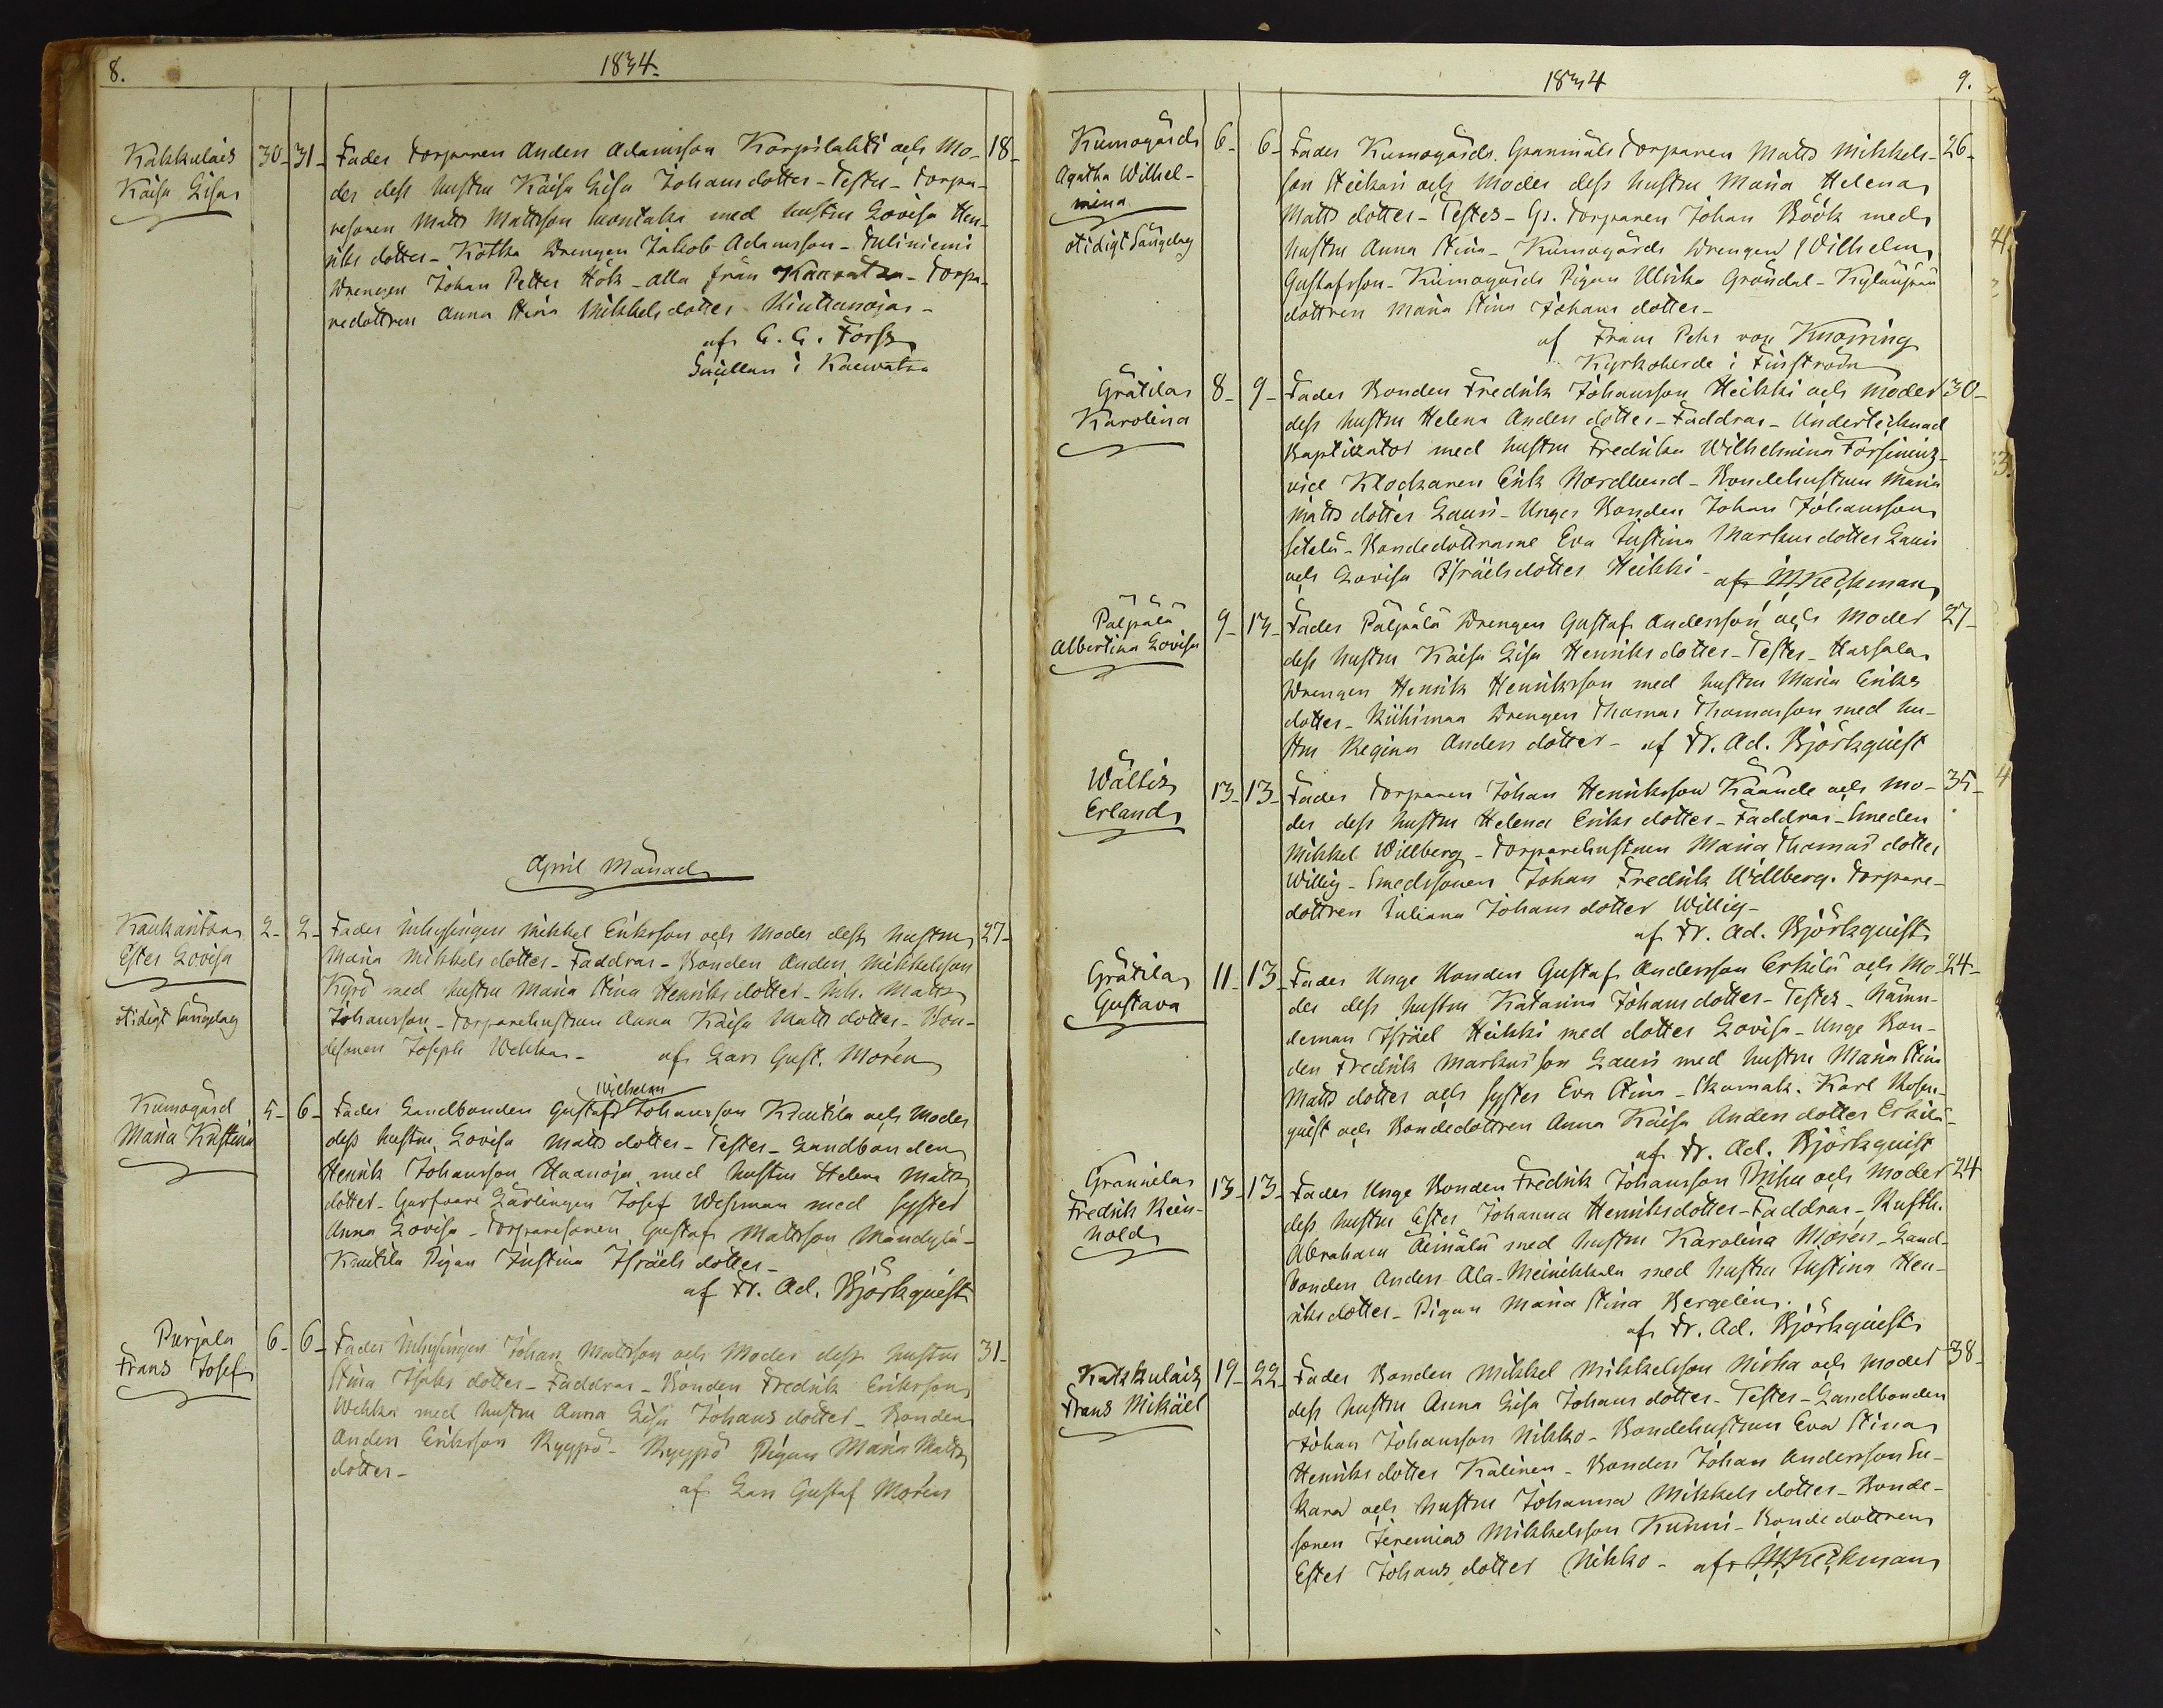 8.
1834.
Kakkulais 30 31 Fader Torparen Anders Adamsson Korpilahti och Mo- 18
Kaisa Lisa
der dess hustru Kaisa Lisa Johansdotter - Testes - Torpa-
resonen Matts Mattsson med hustru Lovisa Hen-
riks dotter - Kotka Drengen Jakob Adamsson - Tuliniemi
Drengen Johan Petter Hök - alla från Kaavatsa - Torpa-
redottren Anna Stina Mikkelsdotter Kiuttanojas -
af G. G. Forss
i Kaewatsa
April Månad
Kaukaritsas 2 2 Fader Inhysingen Mikkel Eriksson och Moder dess hustru 27
Ester Lovisa
Maria Mikkels dotter - Faddrar - Bonden Anders Mikkelsson
otidigt sängelag
Kyrö med hustru Maria Stina Henriks dotter - Inh. Matts
Johansson - Torparehustrun Anna Kaisa Matts dotter - Bon-
desonen Joseph Wehkas - af Lars Gust. Morén
Wilhelm
Kumogård 5 6 Fader Landbonden Gustaf Johansson Krutila och Moder
Maria Kristina
dess hustru Lovisa Matts dotter - Testes - Landbonden
Henrik Johansson Haanoja med hustru Helena Matts
dotter - Garfvare Lärlingen Josef Wesman med syster
Anna Lovisa - Torparesonen Gustaf Mattsson Mändylä -
Krutila Pigan Justina Israels dotter -
af Fr. Ad. Björkquist
Purjala 6 6 Fader Inhysingen Johan Mattsson och Moder dess hustru 31
Frans Josef
Stina Isaks dotter - Faddrar - Bonden Fredrik Eriksson
Wehka med hustru Anna Lisa Johans dotter - Bonden
Anders Eriksson Ryyppö - Ryyppö Pigan Maria Matts
dotter -
af Lars Gustaf Morén
1834
9.
Kumogårds 6 6 Fader Kumogårds Spanmåls Torparen Matts Mikkels- 26
Agatha Wilhel-
mina
son Heikari och Moder dess hustru Maria Helena
otidigt Sängelag
Matts dotter - Testes - Gr. Torparen Johan Böök med
hustru Anna Stina - Kumogårds Drengen Wilhelm
Gustafsson - Kumogårds Pigan Ulrika Gröndal -
dottren Maria Stina Johans dotter -
af Frans Pehr von Knorring
Kyrkoherde i Finström
Grätilas 8 9 Fader Bonden Fredrik Johansson Heikki och Moder 30
Karolina
dess hustru Helena Anders dotter - Faddrar - Undertecknad
Baptizator med hustru Fredrika Wilhelmina
vice Klockaren Erik Nordlund - Bondehustrun Maria
Matts dotter Lauri - Unger Bonden Johan Johansson
Setälä - Bondedöttrarne Eva Justina Markus dotter Lauri
och Lovisa Israelsdotter Heikki - af M Keckman
Pälpälä 9 13 Fader Pälpälä Drengen Gustaf Andersson och Moder 27
Albertina Lovisa
dess hustru Kaisa Lisa Henriks dotter - Testes - Hassala
Drengen Henrik Henriksson med hustru Maria Eriks
dotter - Riihimaa Drengen Thomas Thomasson med hu-
stru Regina Anders dotter - af Fr. Ad. Björkquist
Wältis 13 13 Fader Torparen Johan Henriksson Käände och Mo- 35
Erland
der dess hustru Helena Eriks dotter - Faddrar - Smeden
Mikkel Willberg - Torparehustrun Maria Thomas dotter
Willig - Smedssonen Johan Fredrik Willberg. Torpare-
dottren Juliana Johans dotter Willig -
af Fr. Ad. Björkquist
Grätilas 11 13 Fader Unge Bonden Gustaf Andersson Erkilä och Mo- 24
Gustava
der dess hustru Katarina Johans dotter - Testes - Nämn-
deman Israel Heikki med dotter Lovisa - Unge Bon-
den Fredrik Markus son Lauri med hustru Maria Stina
Matts dotter och syster Eva Stina - Skomak. Karl Rosen-
quist och Bondedottren Anna Kaisa Anders dotter Erkilä
af Fr. Ad. Björkquist
Grannilas 13 13 Fader Unge Bonden Fredrik Johansson och Moder 24
Fredrik Rein-
hold
dess hustru Ester Johanna Henriksdotter - Faddrar - Rusth.
Abraham Äimälä med hustru Karolina Morén - Land-
bonden Anders Ala-Meinikkala med hustru Justina Hen-
riks dotter - Pigan Maria Stina Bergelin.
af Fr. Ad. Björkquist
Kakkulais 19 22 Fader Bonden Mikkel Mikkelsson Nisha och Moder 38
Frans Mikäel
dess hustru Anna Lisa Johans dotter - Testes - Landbonden
Johan Johansson Nikko - Bondehustrun Eva Stina
Henriks dotter Kalinen - Bonden Johan Andersson Su-
kara och hustru Johanna Mikkels dotter - Bonde-
sonen Jeremias Mikkelsson Kunni - Bondedottren
Ester Johans dotter Nikko - af M Keckman